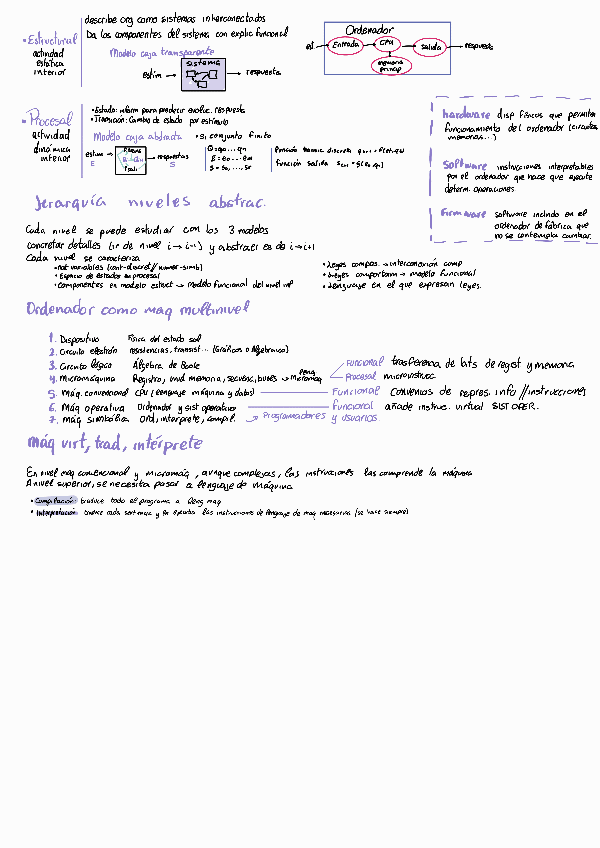 • Estructural
actividad
estática
interior
describe org como sistemas interconectados
Da los componentes del sistema con explic funcional
Modelo caja transparente
estim → sistema → respuesta
Ordenador
est → Entrada CPU Salida → respuesta
memoria
princip
• Procesal
actividad
dinámica
interior
• Estado: inform para predecir evoluc. respuesta
• Transición: Cambio de estado por estímulo
Modelo caja abstracta
• Si conjunto finito
estim → → respuestas
E S
Q = q0 ... qn
E = e0 ... em
S = s0, ..., sr
función salida
hardware disp físicos que permiten
funcionamiento del ordenador (circuitos
memorias...)
Software instrucciones interpretables
por el ordenador que hace que ejecute
determ. operaciones
Firmware software incluido en el
ordenador de fábrica que
no se contempla cambiar.
Jerarquía niveles abstrac.
Cada nivel se puede estudiar con los 3 modelos
concretar detalles (ir de nivel i → i-1) y abstraer es de i → i+1
Cada nivel se caracteriza
• Espacio de estados en procesal
• Componentes en modelo estruct → Modelo funcional del nivel inf
• Leyes compos. → interconexión comp
• Leyes comportam → modelo funcional
• Lenguaje en el que expresan leyes.
Ordenador como maq multinivel
1. Dispositivo Física del estado sol
2. Circuito electrón resistencias, transist... (Gráficos o Algebraico)
3. Circuito lógico Álgebra de Boole
4. Micromáquina Registro, und memoria, secuenc, buses → leng Micromaq
Funcional trasferencia de bits de regist y memoria
Procesal microinstrucc
5. Máq. convencional CPU (Lenguaje máquina y datos) Funcional Convenios de repres. info // instrucciones
6. Máq operativa Ordenador y sist operativo funcional añade instruc. virtual SIST OPER.
7. máq simbólica Ord, interprete, compil. → Programadores y usuarios.
máq virt, trad, intérprete
En nivel maq convencional y micromáq, aunque complejas, las instrucciones las comprende la máquina
A nivel superior, se necesita pasar a lenguaje de máquina
• Compilación: traduce todo el programa a leng maq
• Interpretación: traduce cada sentencia y se ejecuta las instrucciones de lenguaje de maq necesarias (se hace siempre)